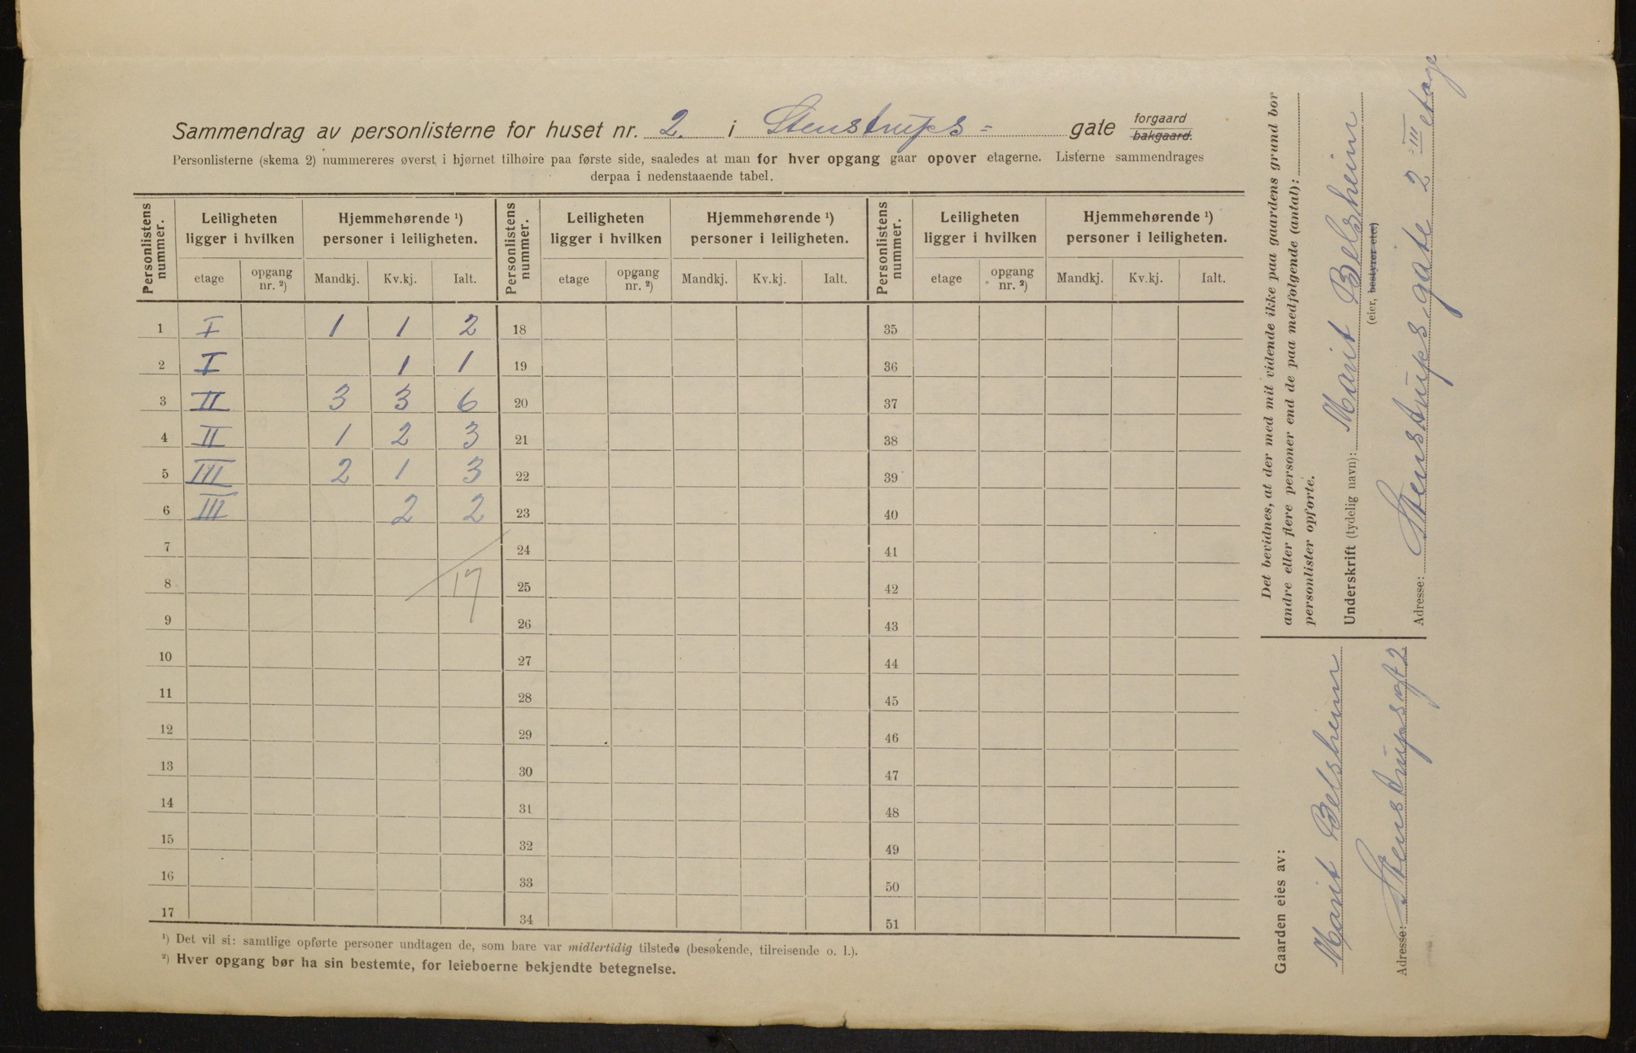 Sammendrag av personlisterne for huset nr. 2. i Stenstrups = gate forgaard bakgaard.
Personlisterne (skema 2) nummereres øverst i hjørnet tilhøire paa første side, saaledes at man for hver opgang gaar opover etagerne. Listerne sammendrages
derpaa i nedenstaaende tabel.
Personlistens nummer. Leiligheten ligger i hvilken Hjemmehørende ¹) personer i leiligheten. Personlistens nummer. Leiligheten ligger i hvilken Hjemmehørende ¹) personer i leiligheten. Personlistens nummer. Leiligheten ligger i hvilken Hjemmehørende ¹) personer i leiligheten.
etage opgang nr. ²) Mandkj. Kv.kj. Ialt. etage opgang nr. ²) Mandkj. Kv.kj. Ialt. etage opgang nr. ²) Mandkj. Kv.kj. Ialt.
1 I 1 1 2 18 35
2 I 1 1 19 36
3 II 3 3 6 20 37
4 II 1 2 3 21 38
5 III 2 1 3 22 39
6 III 2 2 23 40
7 24 41
8 17 25 42
9 26 43
10 27 44
11 28 45
12 29 46
13 30 47
14 31 48
15 32 49
16 33 50
17 34 51
¹) Det vil si: samtlige opførte personer undtagen de, som bare var midlertidig tilstede (besøkende, tilreisende o. l.).
²) Hver opgang bør ha sin bestemte, for leieboerne bekjendte betegnelse.
Det bevidnes, at der med mit vidende ikke paa gaardens grund bor
andre eller flere personer end de paa medfølgende (antal):
personlister opførte.
Underskrift (tydelig navn): Marit Belsheim
(eier, bestyrer etc)
Adresse: Stenstrups gate 2 III etage
Gaarden eies av:
Marit Belsheim
Adresse: Stenstrupsgt 2